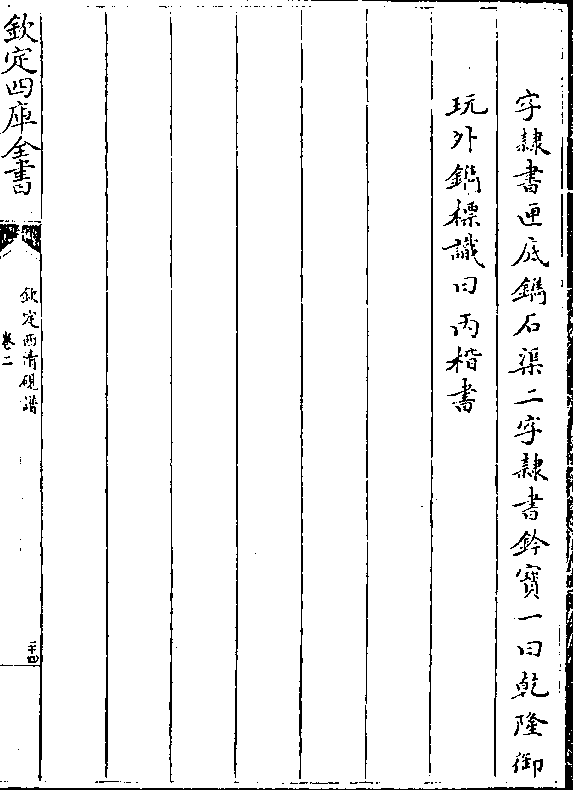 字隸書匣底鐫石渠二字隸書鈐寶一曰乾隆御
玩外鐫標識曰丙楷書
欽定四庫全書
欽定西清硯譜
卷二
二十四